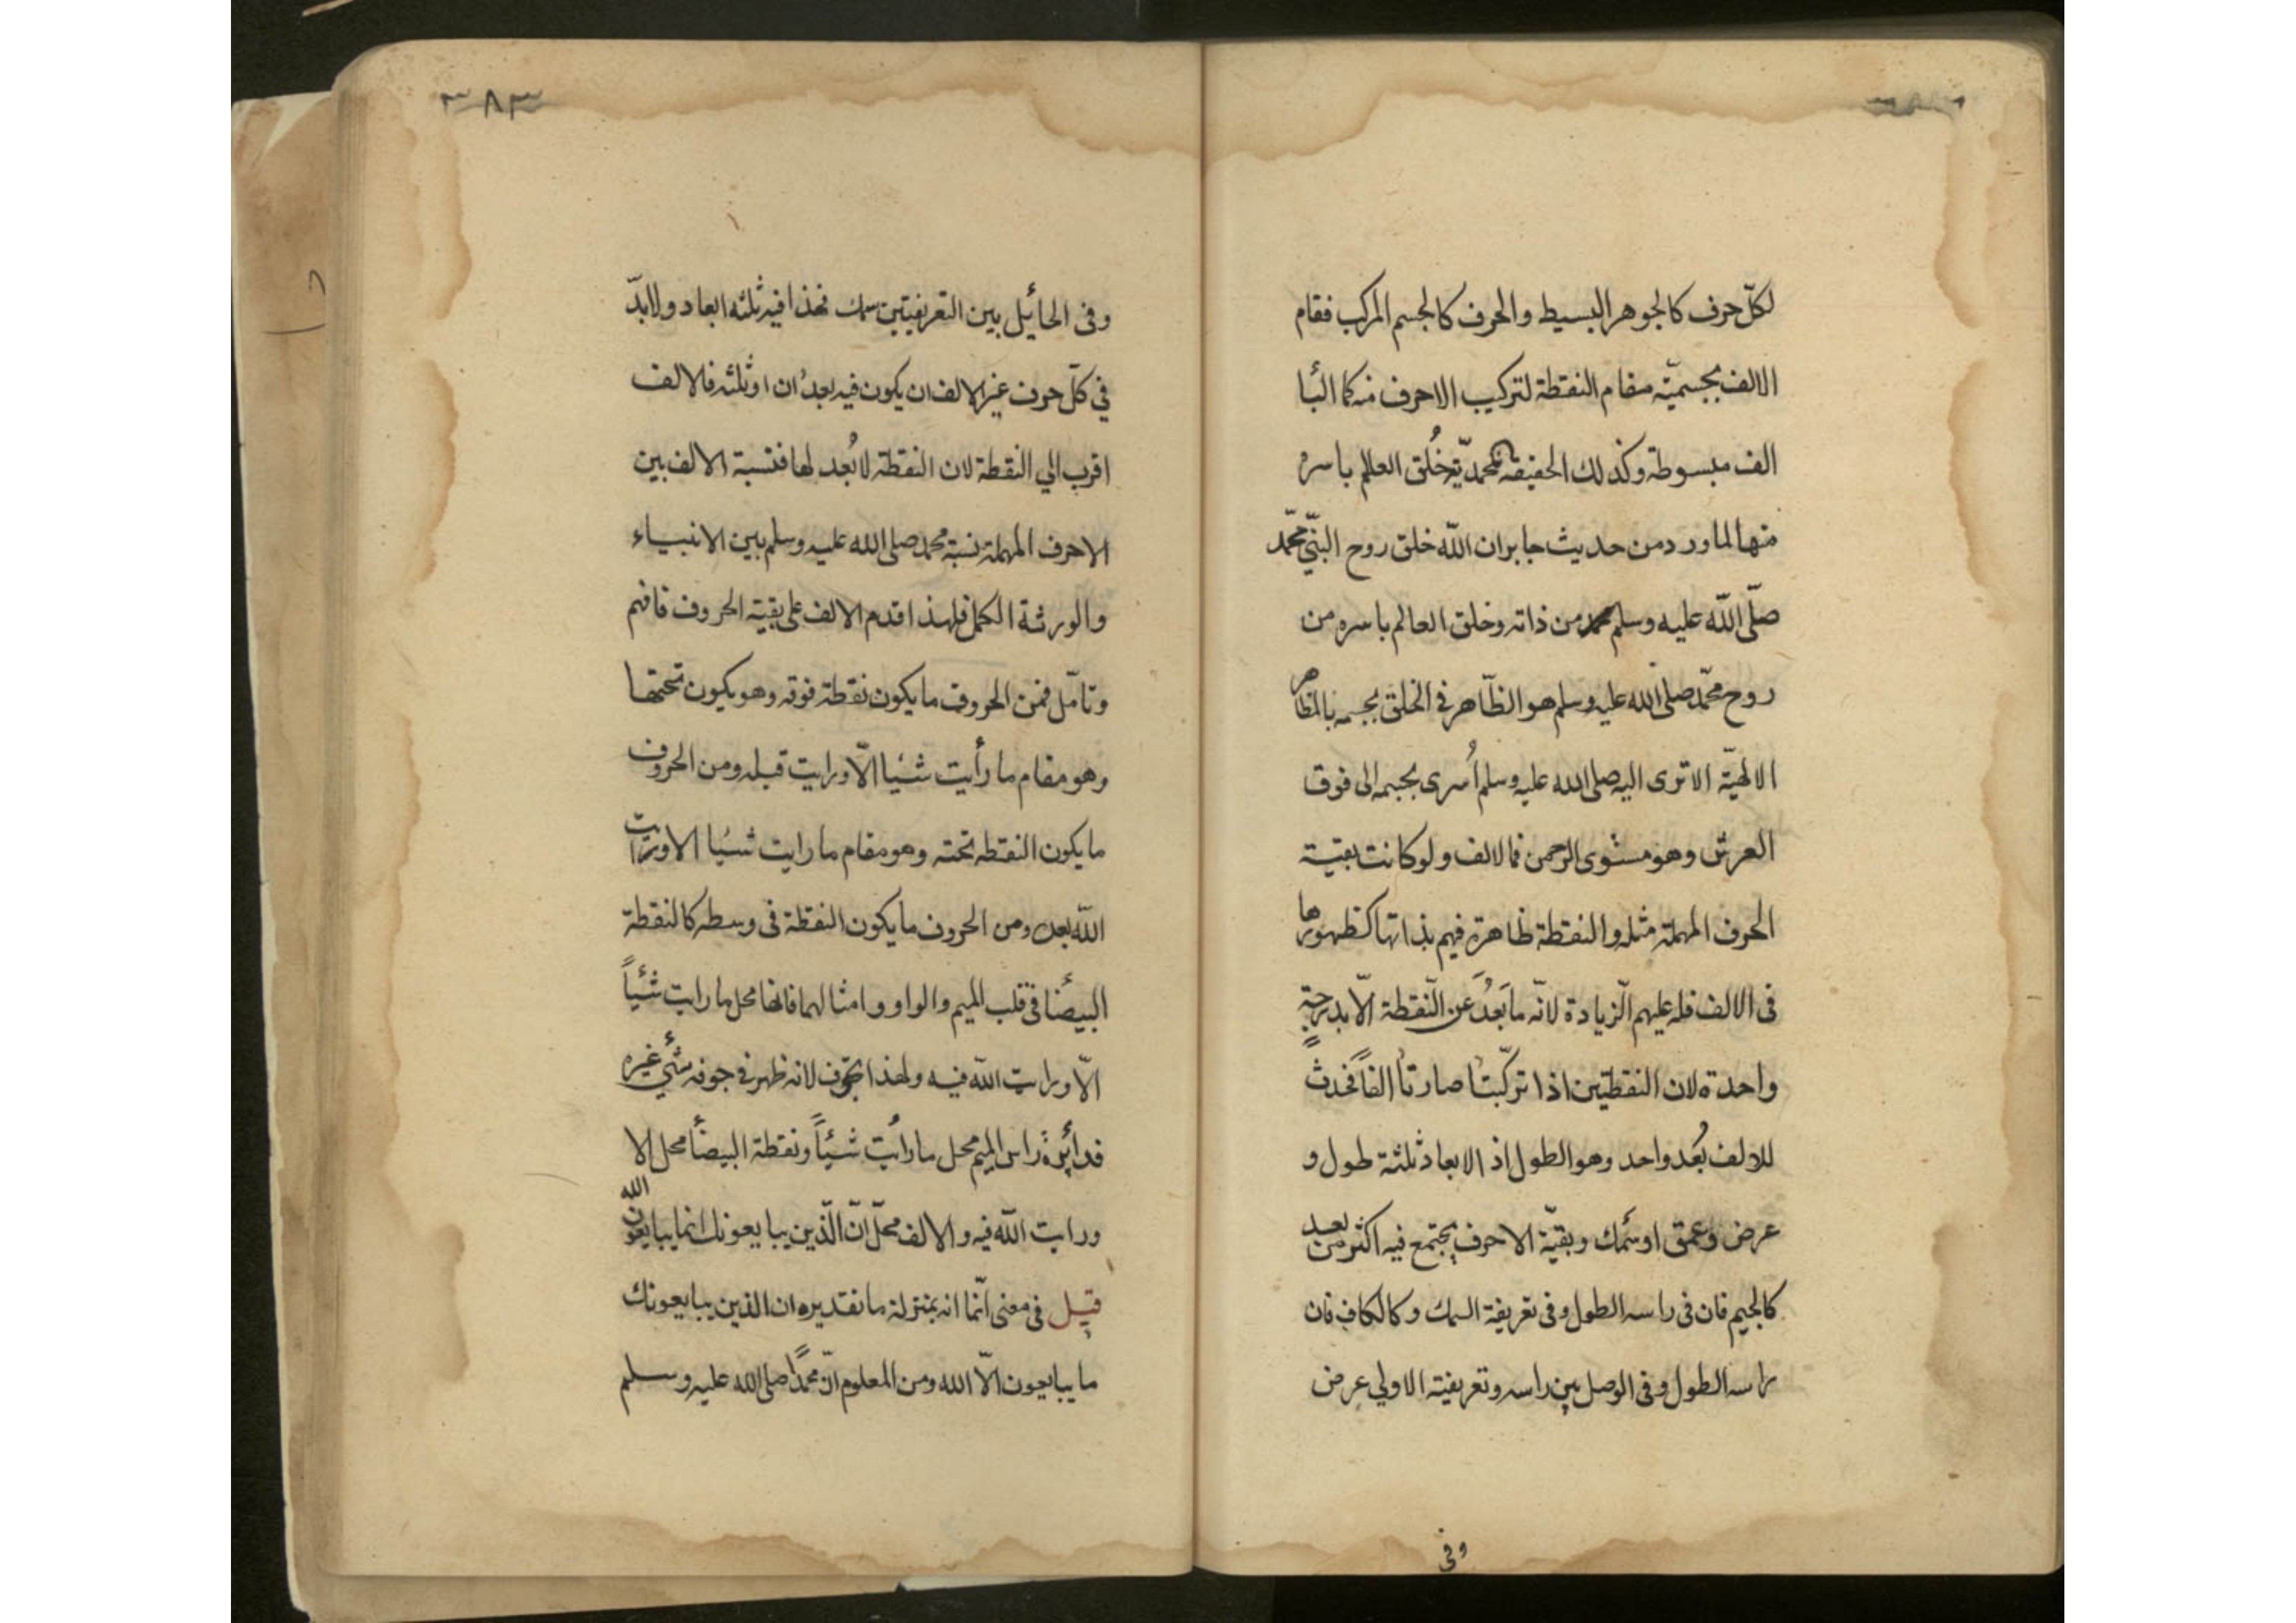 لكلّ حرف كالجوهر البسيط والحرف كالجسم المركب فقام
الالف بجسميّته مقام النقطة لتركيب الاحرف منه كما البا
الف مبسوطة وكذلك الحقيقة المحمديّة خُلق العالم باسره
منها لما ورد من حديث جابر ان اللّه خلق روح النبّي محمّد
صلّى اللّه عليه وسلم من ذاته وخلق العالم باسره من
روح محمّد صلى الله عليه وسلم هو الظّاهر في الخلق بجسمه بالمظاهر
الالهيّة الا ترى اليه صلى الله عليه وسلم أُسرى بجسمه الى فوق
العرش وهو مستوى الرحمن فالالف ولو كانت بقية
الحرف المهملة مثله والنقطة ظاهرة فيهم بذاتها كظهورها
فى الالف فله عليهم الزّيادة لانّه ما بَعُدَ عن النّقطة الّا بدرجة
واحدة لان النقطتين اذا تركّبتا صارتا الفاً فحدث
للالف بُعد واحد وهو الطول اذ الابعاد ثلثة طول و
عرض وعمق او سَمك وبقيّة الاحرف يجتمع فيه اكثر من بعد
كالجيم فان فى راسه الطول وفى تعريفة السمك وكالكاف فان
راسه الطول وفى الوصل بين راسه وتعريفته الاولي عرض
وفى
٣٨٣
وفى الحائيل بين التعريفيتين سمك فهذا فيه ثلثه ابعاد ولابدّ
في كلّ حرف غير الالف ان يكون فيه بعدُان او ثلثه فالالف
اقرب الي النقطة لان النقطة لا بُعد لها فنسبة الالف بين
الاحرف المهملة نسبة محمد صلى الله عليه وسلم بين الانبياء
والورثة الكمل فلهذا قدم الالف على بقية الحروف فافهم
وتامّل فمن الحروف ما يكون نقطة فوقه وهو يكون تحتها
وهو مقام ما رأيت شئيا الّا ورايت قبله ومن الحروف
ما يكون النقطه تحته وهو مقام ما رايت شئيا الا ورايت
اللّه بعده ومن الحروف ما يكون النقطة فى وسطه كالنقطة
البيضا فى قلب الميم والواو وامثالهما فانها محل ما رايت شئياً
الّا ورايت اللّه فيه ولهذا تجوف لانه ظهر في جوفه شئ غيره
فدائرة راس الميم محل ما رأيت شئياً ونقطة البيضأ محل الا
ورايت اللّه فيه والالف محلّ انّ الّذين يبايعونك انما يبايعون الله
قيل فى معنى انّما انه بمنزلة ما تقديره ان الذين يبايعونك
ما يبايعون الّا الله ومن المعلوم انّ محمّداً صلى الله عليه وسلم